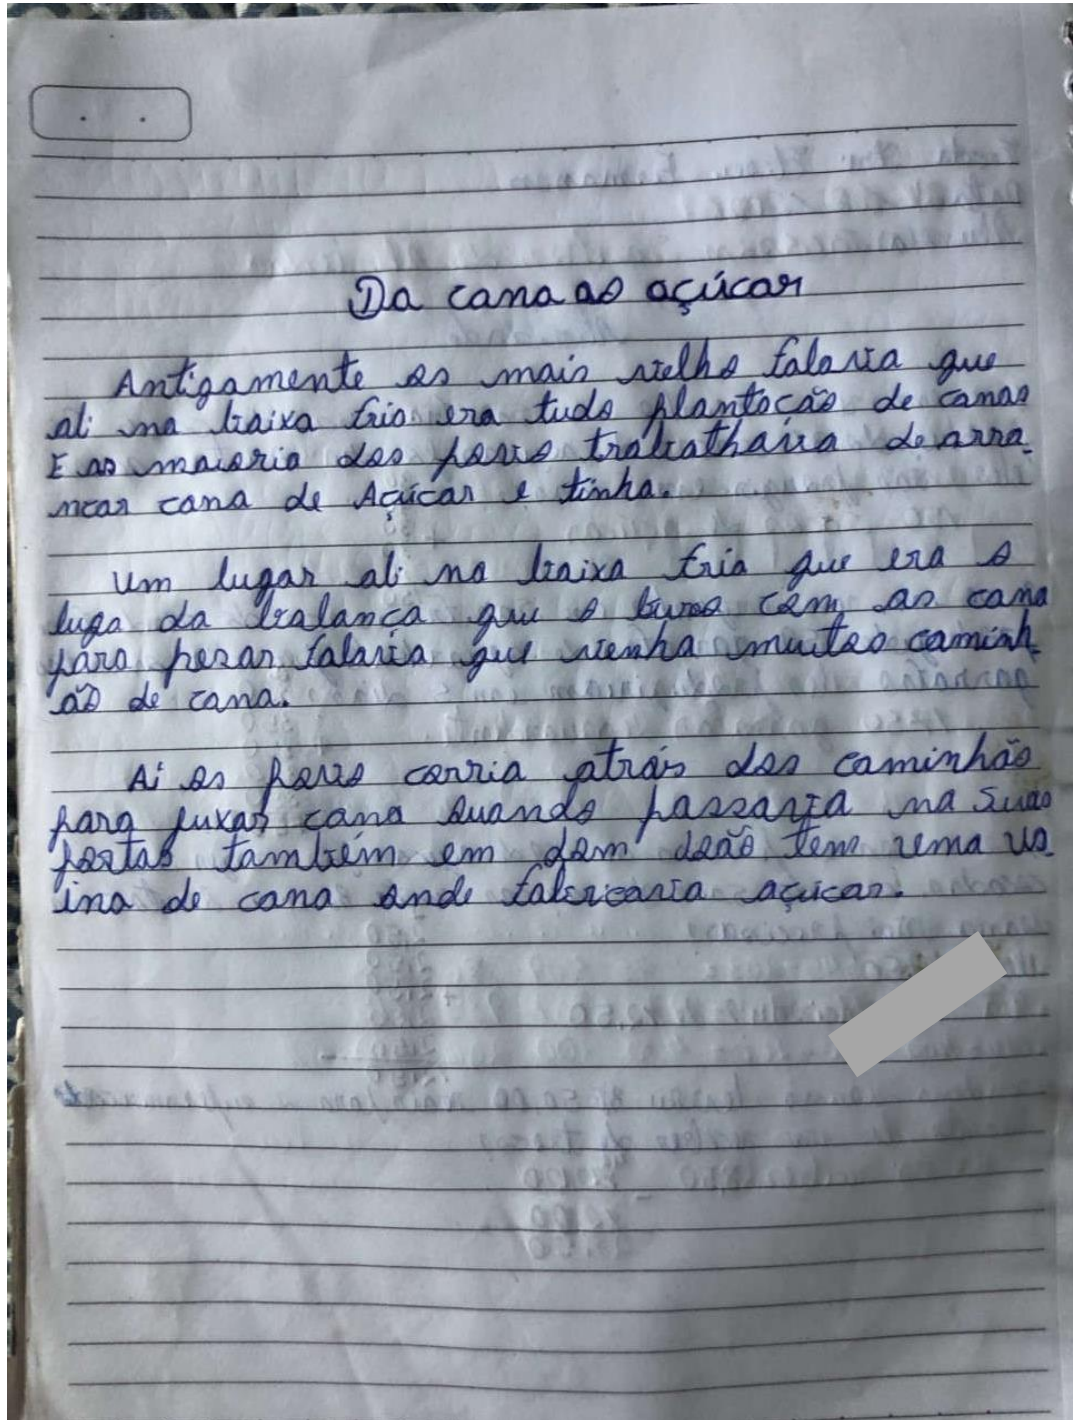 Da cana ao açúcar
Antigamente os mais velho falava que
ali na baixa fria era tudo plantacão de canas
E as maioria dos povo trabathava de arra-
ncar cana de Açúcar e tinha.
Um lugar ali na baixa fria que era o
luga da balança que o burro com as cana
para pesar falava que vienha muitos caminh-
ão de cana.
Ai os povo corria atrás dos caminhão
para puxar cana quando passava na suas
portas também em dom João tem uma us-
ina de cana onde fabricava açúcar.